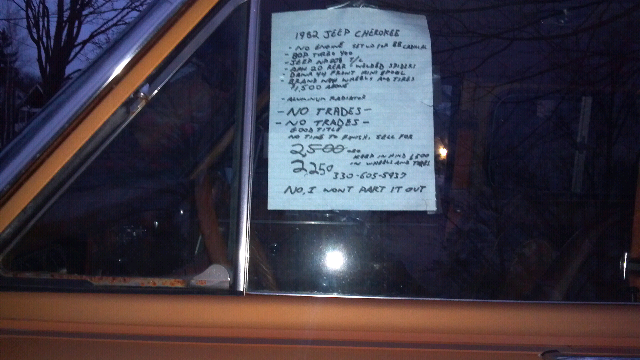 1982 JEEP CHEROKEE
- NO ENGINE SET UP FOR
- TURBO 400
- JEEP T/C
- 20 REAR - WELDED SPIDERS
- DANA 44 FRONT MINI SPOOL
- BRAND NEW WHEELS AND TIRES
$1,500 ALONE
- ALUMINUM RADIATOR
- NO TRADES -
- NO TRADES -
GOOD TITLE
NO TIME TO FINISH. SELL FOR
2500
KEEP IN MIND 1500
2250 IN WHEELS AND TIRES
330-605-5937
NO, I WONT PART IT OUT